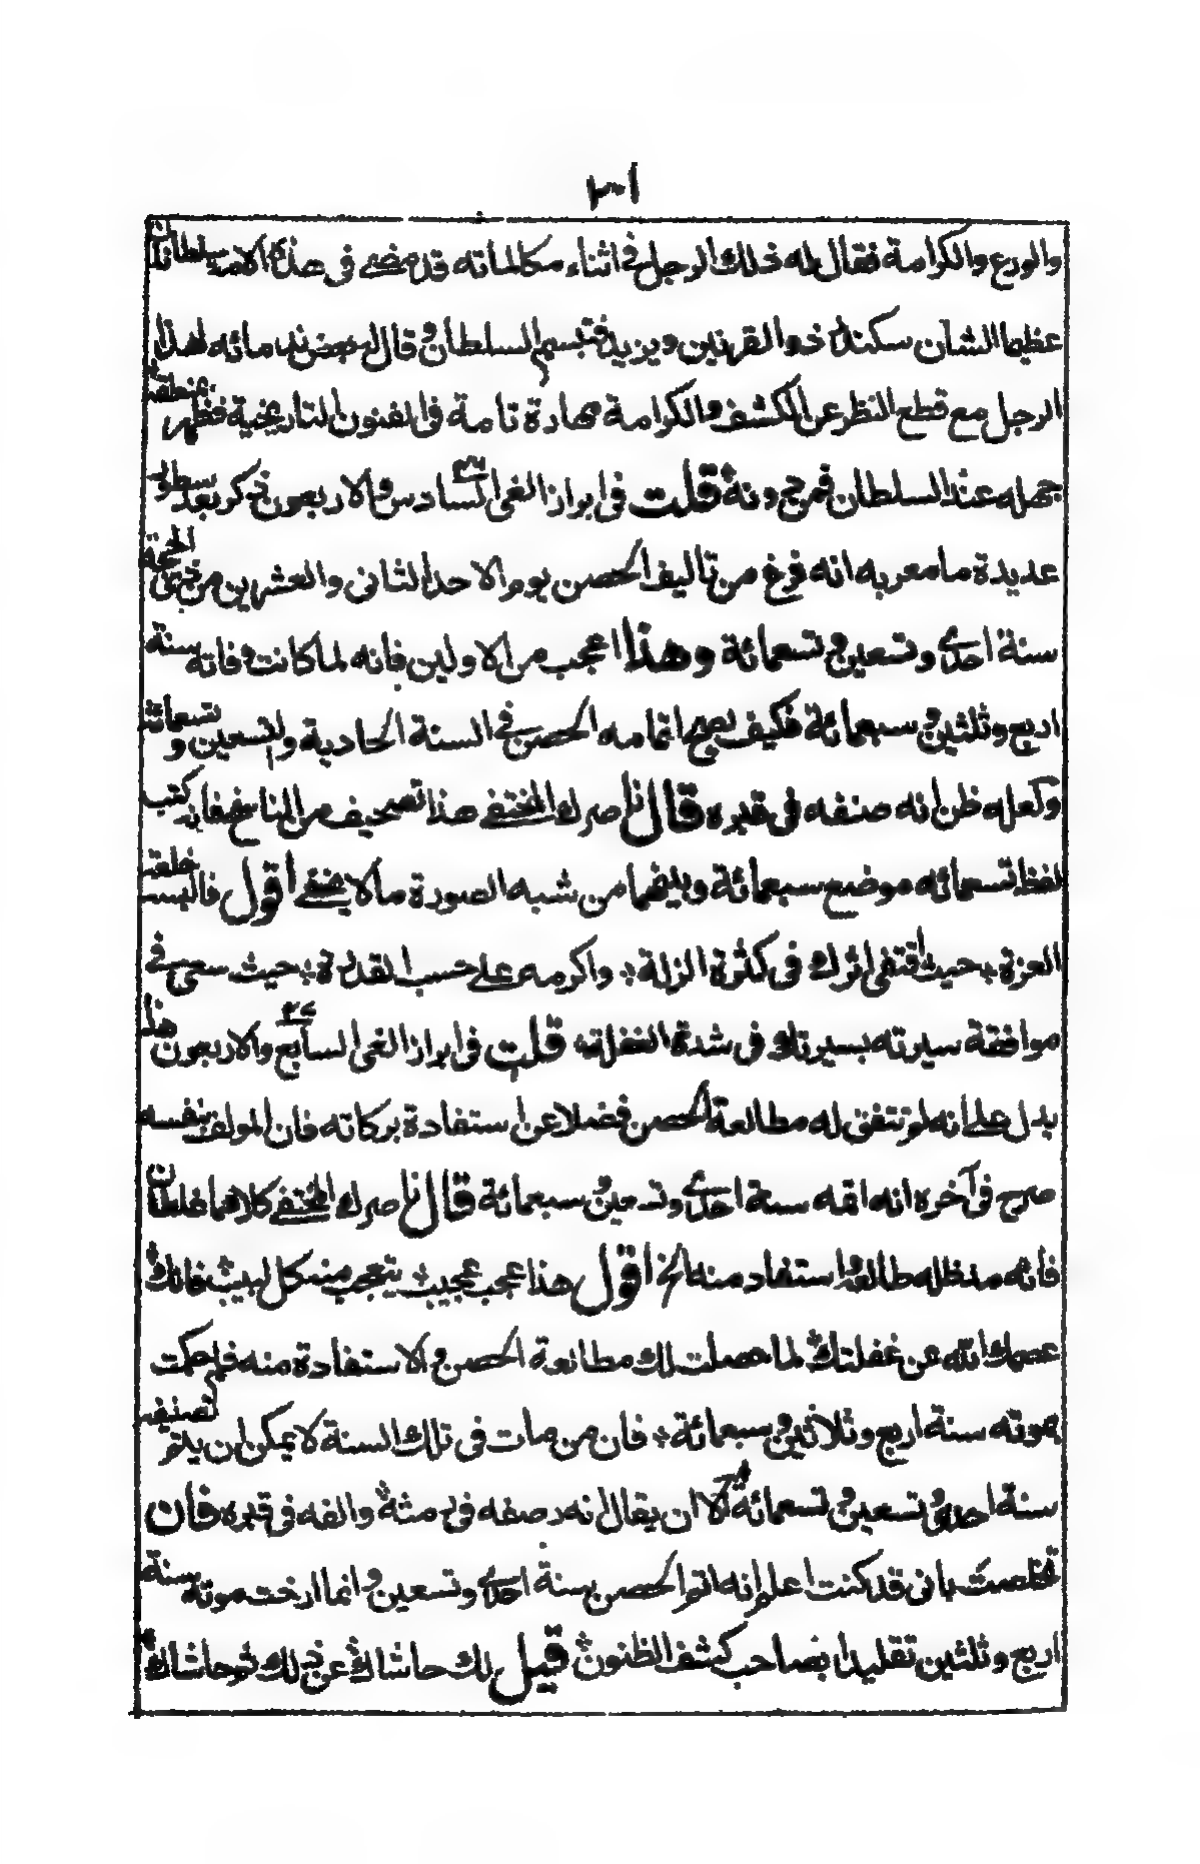 ١٠٢
والورع والكرامة فقال له ذلك الرجل في اثناء مكالماته قد مضى في هذه الامة سلطانان
عظيما الشأن سكندر ذو القرنين ويزيد فتبسم السلطان وقال لبعض ندمائه لهذا
الرجل مع قطع النظر عن الكشف والكرامة مهارة تامة في الفنون التاريخية فظهر بمنطقه
جهله عند السلطان فمن ج ونه قلت في ابراز الغي السادس والاربعون ذكر بعد سطور
عديدة ما معربه انه فرغ من تاليف الحصن يوم الاحد الثاني والعشرين من ذي الحجة
سنة احدى وتسعين وتسعمائة وهذا اعجب من الاولين فانه لما كانت وفاته سنة
اربع وثلثين وسبعمائة فكيف يصح اتمامه الحصن في السنة الحادية والتسعين وتسعمائة
ولعله ظن انه صنفه في قبره قال ناصرك المختفي هذا تصحيف من الناسخ فانه كتب
لفظ تسعمائه موضع سبعمائة وبينهما من شبه الصورة ما لا يخفى اقول فالبسه خلعة
العزة حيث اقتفى اثرك في كثرة الزلة واكرمه على حسب القدرة حيث سعى في
موافقة سيرته بسيرتك في شدة الغفلة قلت في ابراز الغي السابع والاربعون هذا
يدل على أنه لم تتفق له مطالعة الحصن فضلا عن استفادة بركاته فان المولف بنفسه
صرح في آخره انه اتمه سنة احدى وتسعين وسبعمائة قال ناصرك المختفي كلاهما غلطان
فانه مد ظله طالعه استفاد منه الخ اقول هذا عجب عجيب يتعجب منه كل لبيب فانك
عصمك الله عن غفلتك لما حصلت لك مطالعة الحصن والاستفادة منه فلم حكمت
بموته سنة اربع وثلاثين وسبعمائة فان من مات في تلك السنة لا يمكن ان يتم تصنيفه
سنة احدى وتسعين وتسعمائة الا ان يقال انه رصفه في رمثه والفه في قبره فان
تخلصت باني قد كنت اعلم انه اتم الحصن سنة احدى وتسعين وانما ارخت موته سنة
اربع وثلثين تقليدا بصاحب كشف الظنون قيل لك حاشاك عن ذلك ثم حاشاك